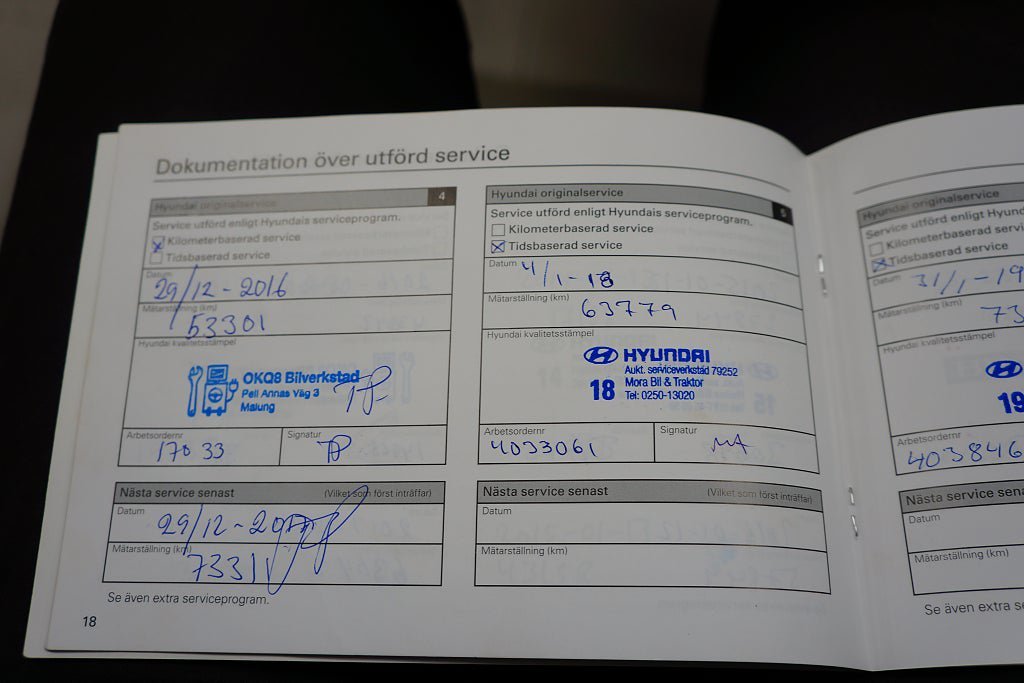 Dokumentation över utförd service
Hyundai originalservice 4
Service utförd enligt Hyundais serviceprogram.
Kilometerbaserad service
Tidsbaserad service
Datum
29/12-2016
Mätarställning (km)
53301
Hyundai kvalitetsstämpel
OKQ8 Bilverkstad
Pell Annas Väg 3
Malung
Arbetsordernr
Signatur
170 33
Nästa service senast (Vilket som först inträffar)
Datum
29/12-2017
Mätarställning (km)
73311
Se även extra serviceprogram.
18
Hyundai originalservice 5
Service utförd enligt Hyundais serviceprogram.
Kilometerbaserad service
Tidsbaserad service
Datum
4/1-18
Mätarställning (km)
63779
Hyundai kvalitetsstämpel
HYUNDAI
Aukt. serviceverkstad 79252
18 Mora Bil & Traktor
Tel: 0250-13020
Arbetsordernr
Signatur
4033061
MA
Nästa service senast (Vilket som först inträffar)
Datum
Mätarställning (km)
Hyundai originalservice
Service utförd enligt Hyund
Kilometerbaserad service
Tidsbaserad service
Datum
31/1-19
Mätarställning (km)
73
Hyundai kvalitetsstämpel
19
Arbetsordernr
403846
Nästa service sena
Datum
Mätarställning (km)
Se även extra s